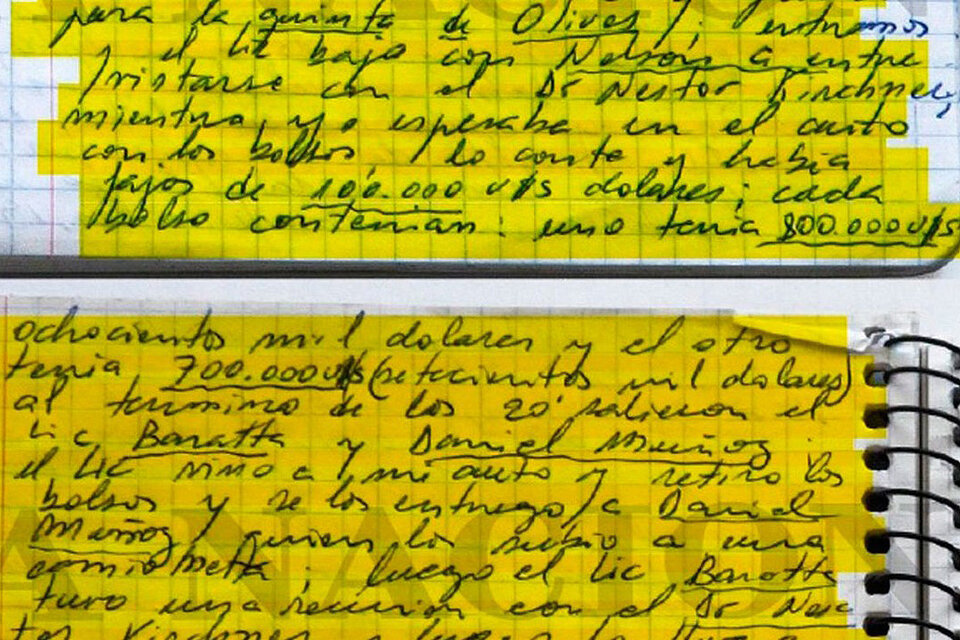 para la quinta de Olivos, entramos
y el Lic bajo con Nelson a entre
vistarse con el Dr Nestor Kirchner,
mientra, yo esperaba en el auto
con los bolsos, lo conte y habia
fajos de 100.000 U$S dolares; cada
bolso contenian: uno tenia 800.000 U$S
ochocientos mil dolares y el otro
tenia 700.000 U$S (setecientos mil dolares)
al termino de los 20' salieron el
Lic Baratta y Daniel Muñoz.
el Lic vino a mi auto y retiro los
bolsos y se los entrego a Daniel
Muñoz, quien lo subio a una
camioneta; luego el Lic Baratta
tuvo una reunion con el Dr Nes
tor Kirchner y luego lo
LA NACION